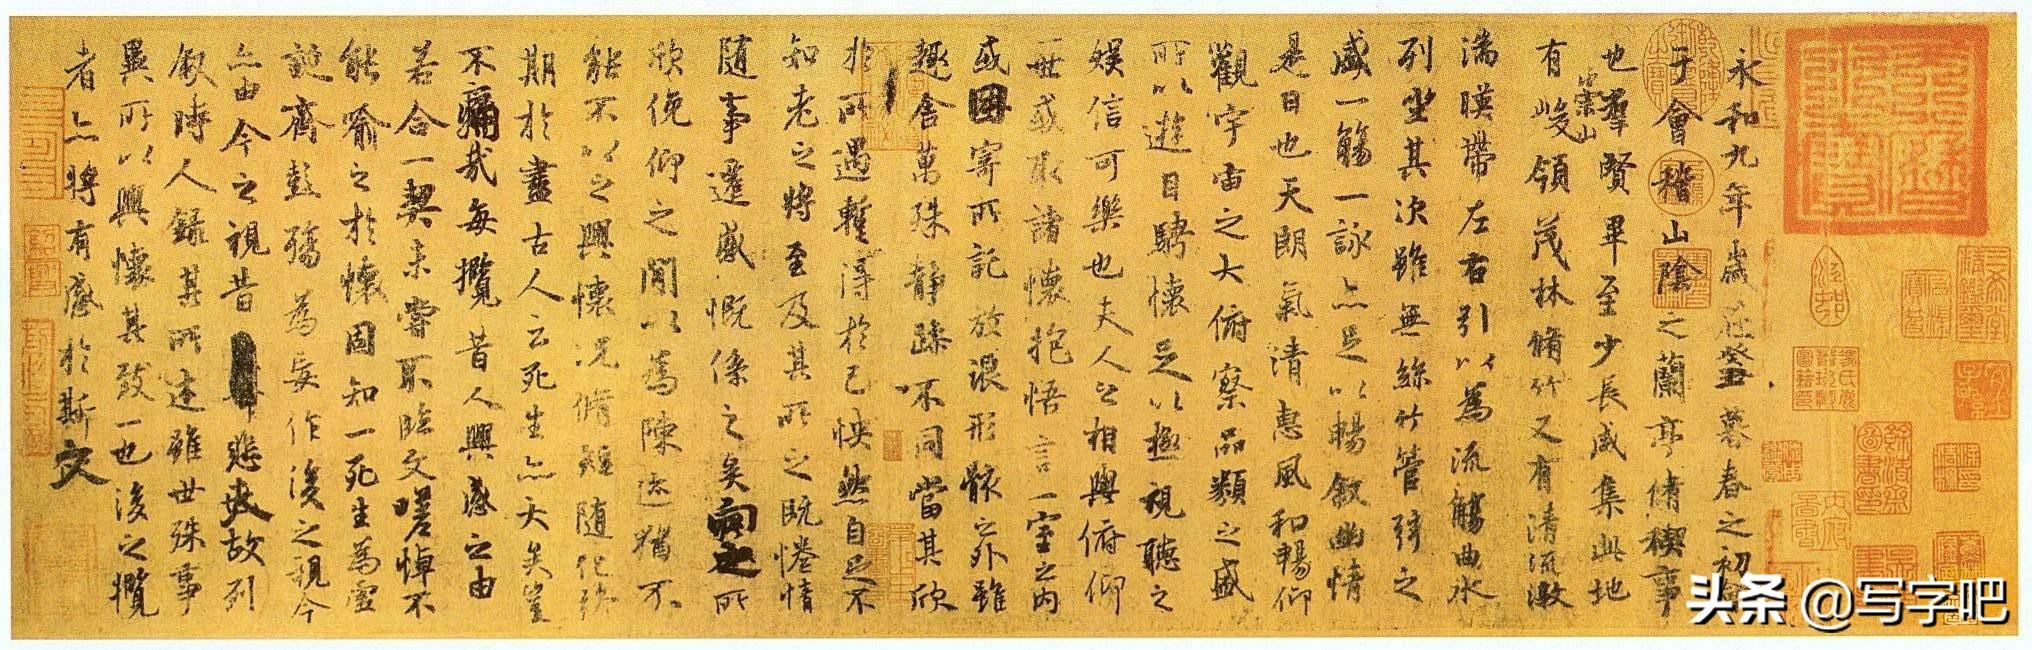 永和九年歲在癸丑暮春之初會
于會稽山陰之蘭亭脩稧事
也羣賢畢至少長咸集此地
有崇山峻領茂林脩竹又有清流激
湍暎帶左右引以為流觴曲水
列坐其次雖無絲竹管弦之
盛一觴一詠亦足以暢敘幽情
是日也天朗氣清惠風和暢仰
觀宇宙之大俯察品類之盛
所以遊目騁懷足以極視聽之
娛信可樂也夫人之相與俯仰
一世或取諸懷抱悟言一室之內
或因寄所託放浪形骸之外雖
趣舍萬殊靜躁不同當其欣
於所遇暫得於己怏然自足不
知老之將至及其所之既惓情
隨事遷感慨係之矣向之所
欣俛仰之閒以為陳迹猶不
能不以之興懷況脩短隨化終
期於盡古人云死生亦大矣豈
不痛哉每攬昔人興感之由
若合一契未嘗不臨文嗟悼不
能喻之於懷固知一死生為虛
誕齊彭殤為妄作後之視今
亦由今之視昔悲夫故列
敘時人錄其所述雖世殊事
異所以興懷其致一也後之攬
者亦將有感於斯文
头条 @写字吧